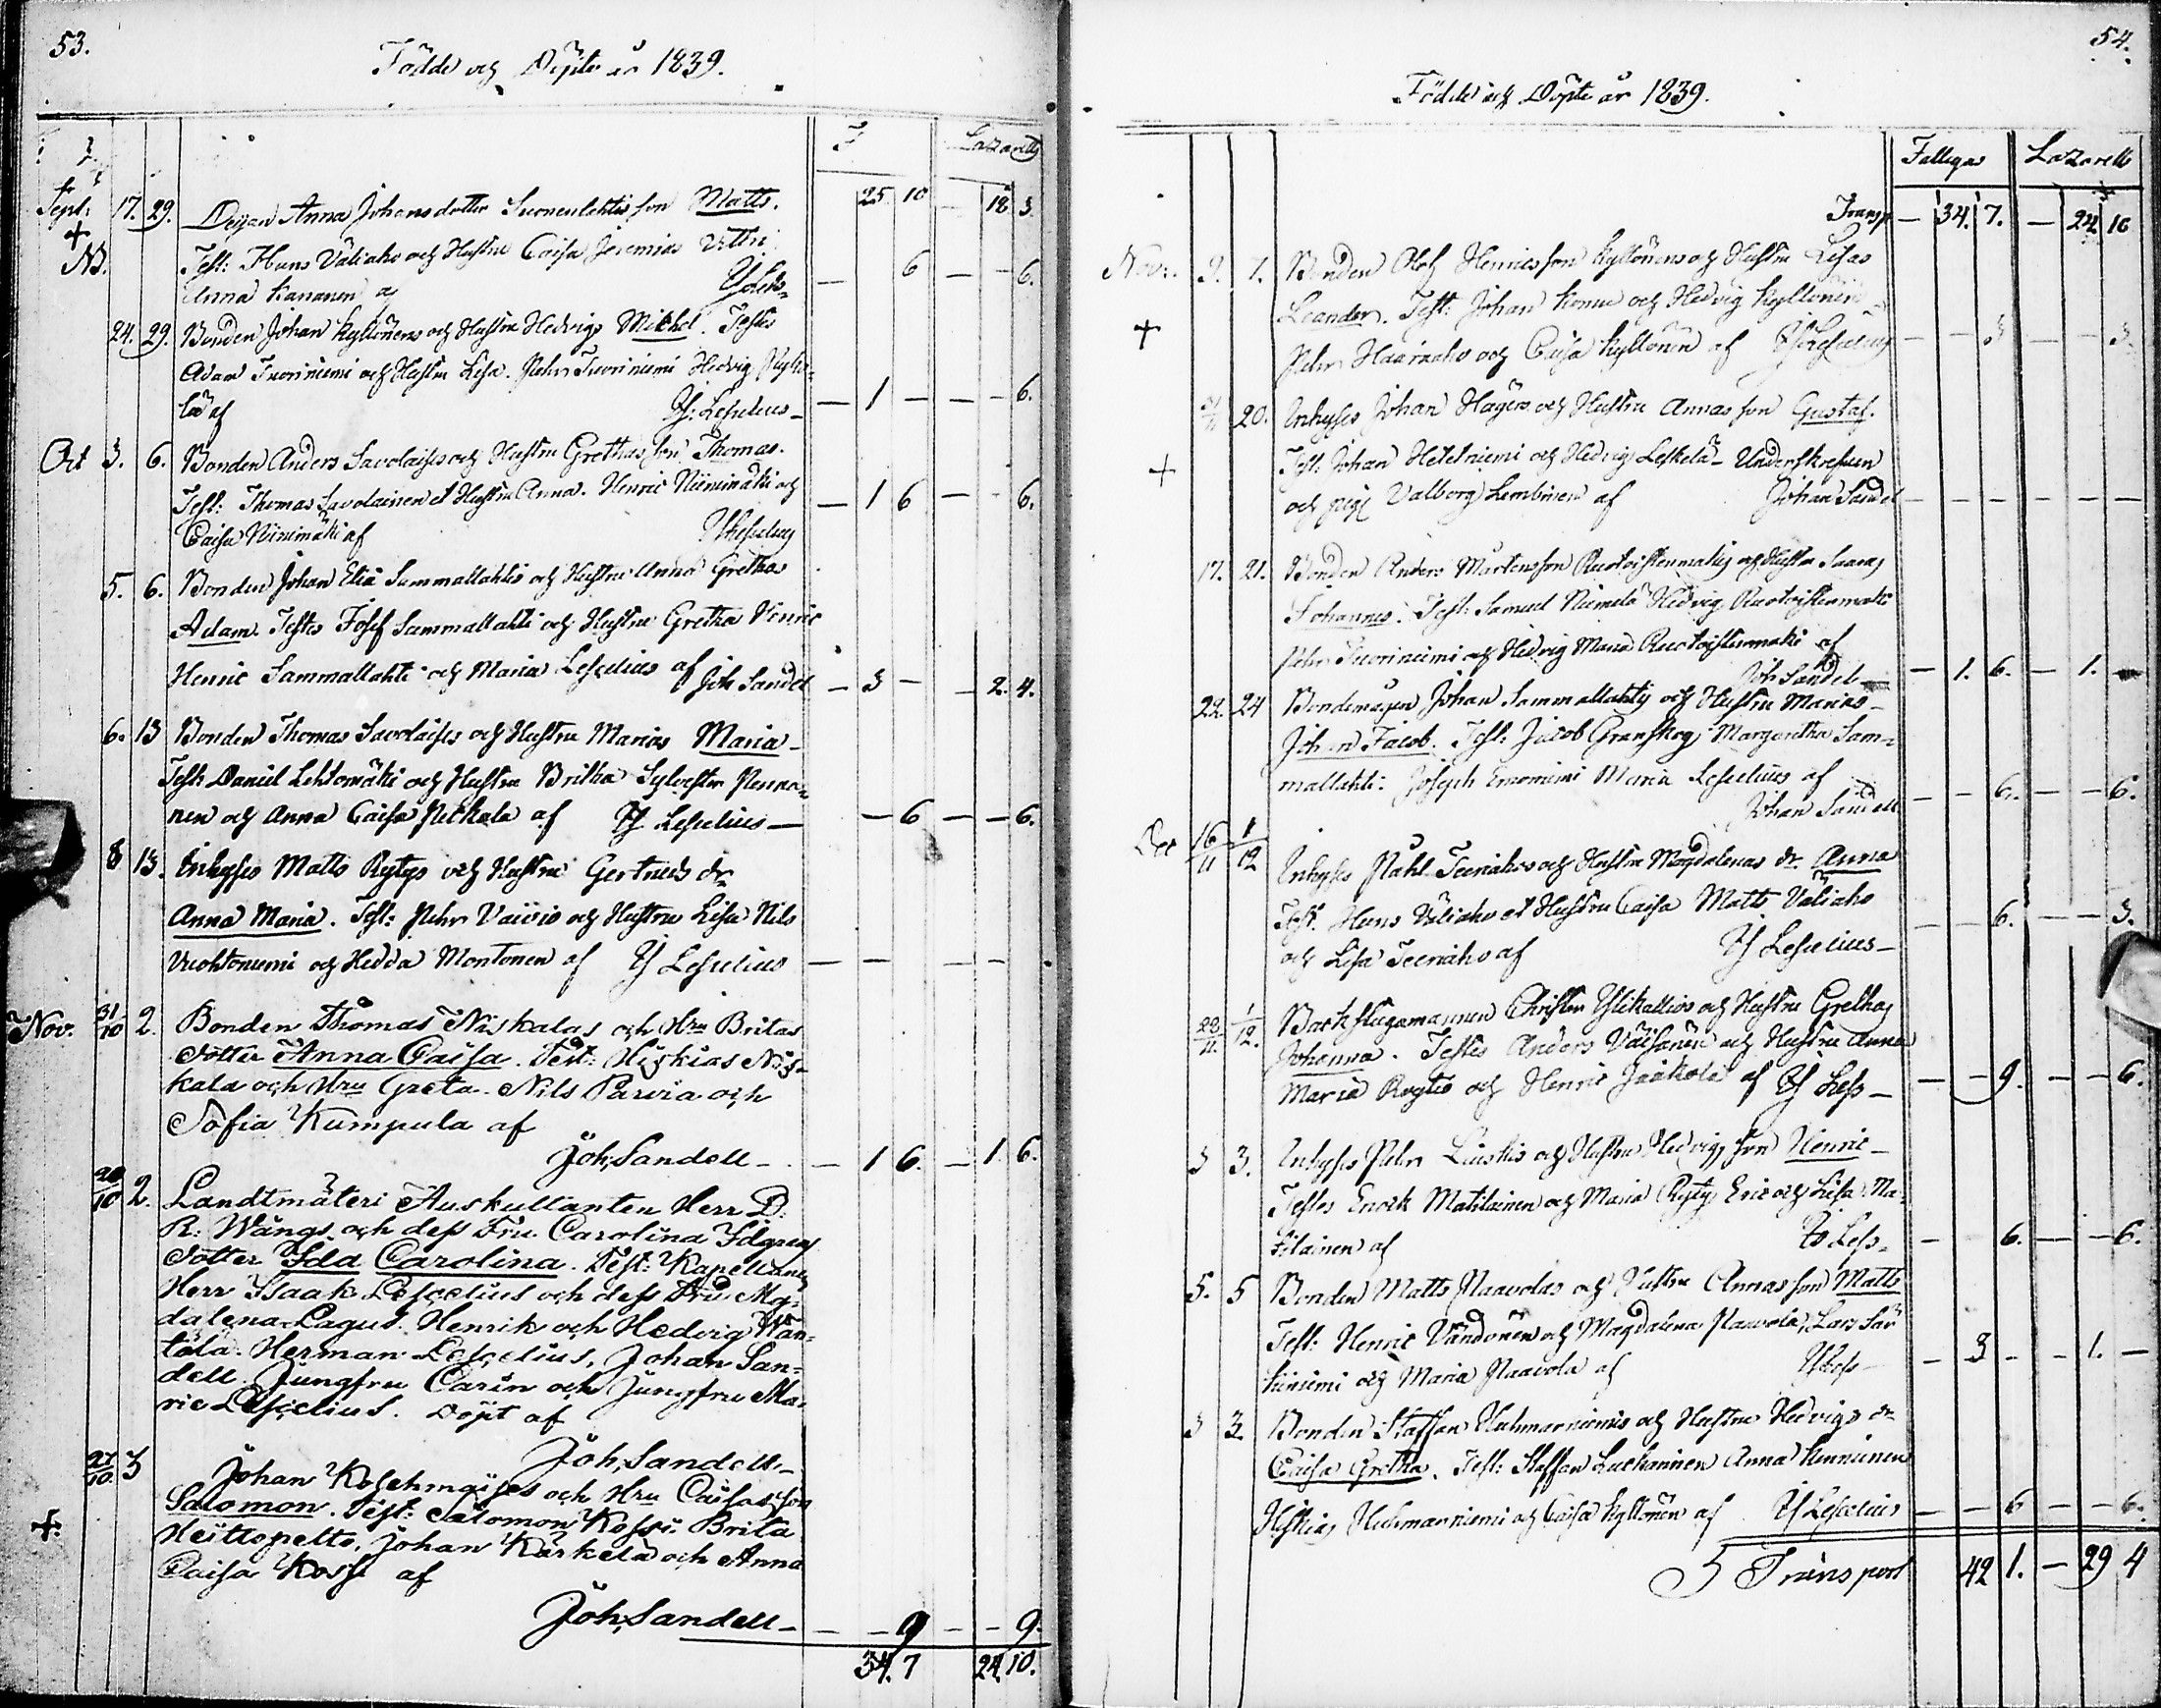 53.
Födde och Döpte år 1839.
F Lazarett
Sept: 17. 29. Anna Johansdotter son Matts. 25 10 — 18 3.
+ Test: Hans Väliaho och Hustru Caisa Jeremias
NB. Anna Kananen af — 6 — — 6.
24. 29. Bonden Johan Kyllönens och Hustru Hedvigs Mickel. Testes
Adam Tuoriniemi och Hustru Lisa. Pehr Tuoriniemi Hedvig
lä af Lescelius — 1 — — — 6.
Oct 3. 6. Bonden Anders Savolaises och Hustru Grethas son Thomas.
Test: Thomas Savolainen et Hustru Anna. Henric Niinimäki och
Caisa Niinimäki af Lescelius — 1 6 — 6.
5. 6. Bonden Johan Eliæ Sammallahtis och Hustru Anna Grethas
Adam. Testes Josef Sammallahti och Hustru Gretha
Henric Sammallahti och Maria Lescelius af Joh Sandel — 3 — — 2. 4.
6. 13 Bonden Thomas Savolaises och Hustru Marias Maria —
Test: Daniel Lehtomäki och Hustru Britha Sylvester Penna-
nen och Anna Caisa Pekkala af Lescelius — — 6 — — 6.
8 13. Inhyses Matts Rytys och Hustru Gertruds dr
Anna Maria. Test: Pehr Vaivio och Hustru Lisa Nils
Vuohtoniemi och Hedda Montonen af Lescelius — — — —
Nov. 31/10 2. Bonden Thomas Niskalas och Hru Britas
dotter Anna Caisa. Test: Hiskias Nis-
kala och Hru Greta. Nils Parvia och
Sofia Kumpula af
Joh, Sandell — — 1 6. — 1. 6.
20/10 2. Landtmäteri Auskultanten Herr D.
R: Wängs och dess Fru Carolina Idgrens
dotter Ida Carolina. Test: Kapellanen
Herr Isaak Lescelius och dess Fru Mag-
dalena Lagus. Henrik och Hedvig Wän-
tölä. Herman Lescelius, Johan San-
dell. Jungfru Carin och Jungfru Ma-
rie Lescelius. Döpt af
Joh, Sandell —
27/10. 3 Johan Kolehmaises och Hru Caisas son
Salomon. Test: Salomon Kossi Brita
+ Heittopelto. Johan Kärkelä och Anna
Caisa Kossi af
Joh, Sandell — — — 9 — — 9.
34. 7 24. 10.
54.
Födde och Döpte år 1839.
Fattiga Lazarett
Transp — 34. 7. — 24. 10
Nov: 2. 7. Bonden Olof Henricsson Kyllönens och Hustru Lisas
Leander. Test: Johan Komu och Hedvig Kyllönen
+ Pehr Haaraaho och Caisa Kyllönen af Lescelius — 3 — — 3.
20. Inhyses Johan Hägers och Hustru Annas son Gustaf.
+ Test: Johan Hetteniemi och Hedvig Leskelä — Underskrefven
och pig Valborg Lembinen af Johan Sandel — — — — — —
17. 21. Bonden Anders Mårtensson Ruotoistenmäkis och Hustru Saaras
Johannes. Test: Samuel Niemelä Hedvig Ruotoistenmäki
Pehr Tuoriniemi och Hedvig Maria Ruotoistenmäki af
Joh Sandel — — 1. 6. — 1. —
22. 24 Bondemågen Johan Sammallahtis och Hustru Marias —
Johan Jacob. Test: Jacob Granskog Margaretha Sam-
mallahti. Joseph Emoniemi Maria Lescelius af
Johan Sandell — — 6. — — 6.
Dec 16/11 1/12 Inhyses Påhl Teeriahos och Hustru Magdalenas dr. Anna
Test. Hans Väliaho et Hustru Caisa Matts Väliaho
och Lisa Teeriaho af Lescelius — — 6. — — 3.
22/11. 1/12. Backstugomannen Christer Ylikallios och Hustru Grethas
Johanna. Testes Anders Väisänen och Hustru Anna
Maria Rytis och Henric Jaakola af Less — — — 9. — — 6.
3 3. Inhyses Pehr Liuskis och Hustru Hedvigs son Henric —
Testes Enock Matilainen och Maria Rytys Eric och Lisa Ma-
tilainen af Less — — 6. — — 6.
5. 5 Bonden Matts Paavolas och Hustru Annas son Matts
Test: Henric Vändönen och Magdalena Paavola, Lars Sär
kiniemi och Maria Paavola af — 3 — — 1. —
3 3. Bonden Staffan Huhmarniemis och Hustru Hedvigs dr
Caisa Gretha. Test: Staffan Luckainen Anna Kinnunen
Hiskias Huhmarniemi och Caisa Kyllönen af Lescelius — — 6 — — 6.
Transport 42 1. — 29 4